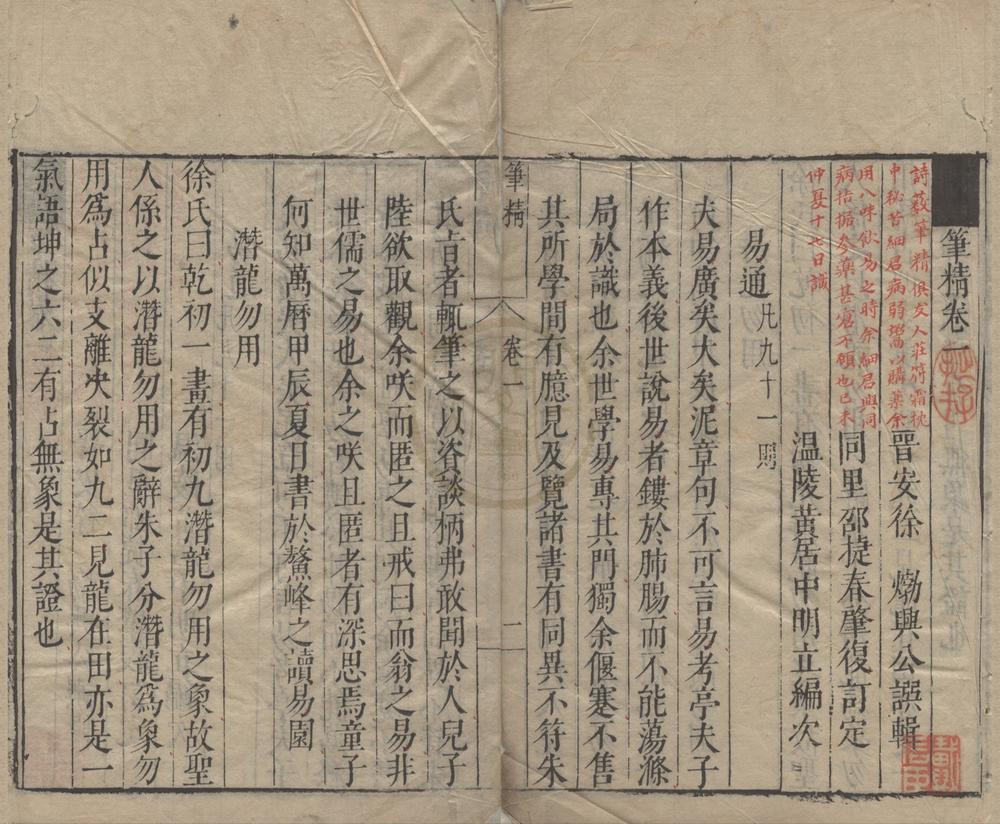 筆精卷一
晉安徐𤊹興公譔輯
同里邵捷春肇復訂定
溫陵黃居中明立編次
詩薮筆精俱友人莊符霜枕
中秘昔細君病弱鬻以購藥余
用八味飲易之時余細君與同
病拮据參藥甚窘不顧也己未
仲夏十七日識
易通凡九十一則
夫易廣矣大矣泥章句不可言易考亭夫子
作本義後世說易者鏤於肺腸而不能蕩滌
局於識也余世學易專其門獨余偃蹇不售
其所學間有臆見及覽諸書有同異不符朱
筆精 卷一 一
氏旨者輒筆之以資談柄弗敢聞於人兒子
陸欲取觀余咲而匿之且戒曰而翁之易非
世儒之易也余之咲且匿者有深思焉童子
何知萬曆甲辰夏日書於鰲峰之讀易園
潛龍勿用
徐氏曰乾初一畫有初九潛龍勿用之象故聖
人係之以潛龍勿用之辭朱子分潛龍為象勿
用為占似支離决裂如九二見龍在田亦是一
氣語坤之六二有占無象是其證也